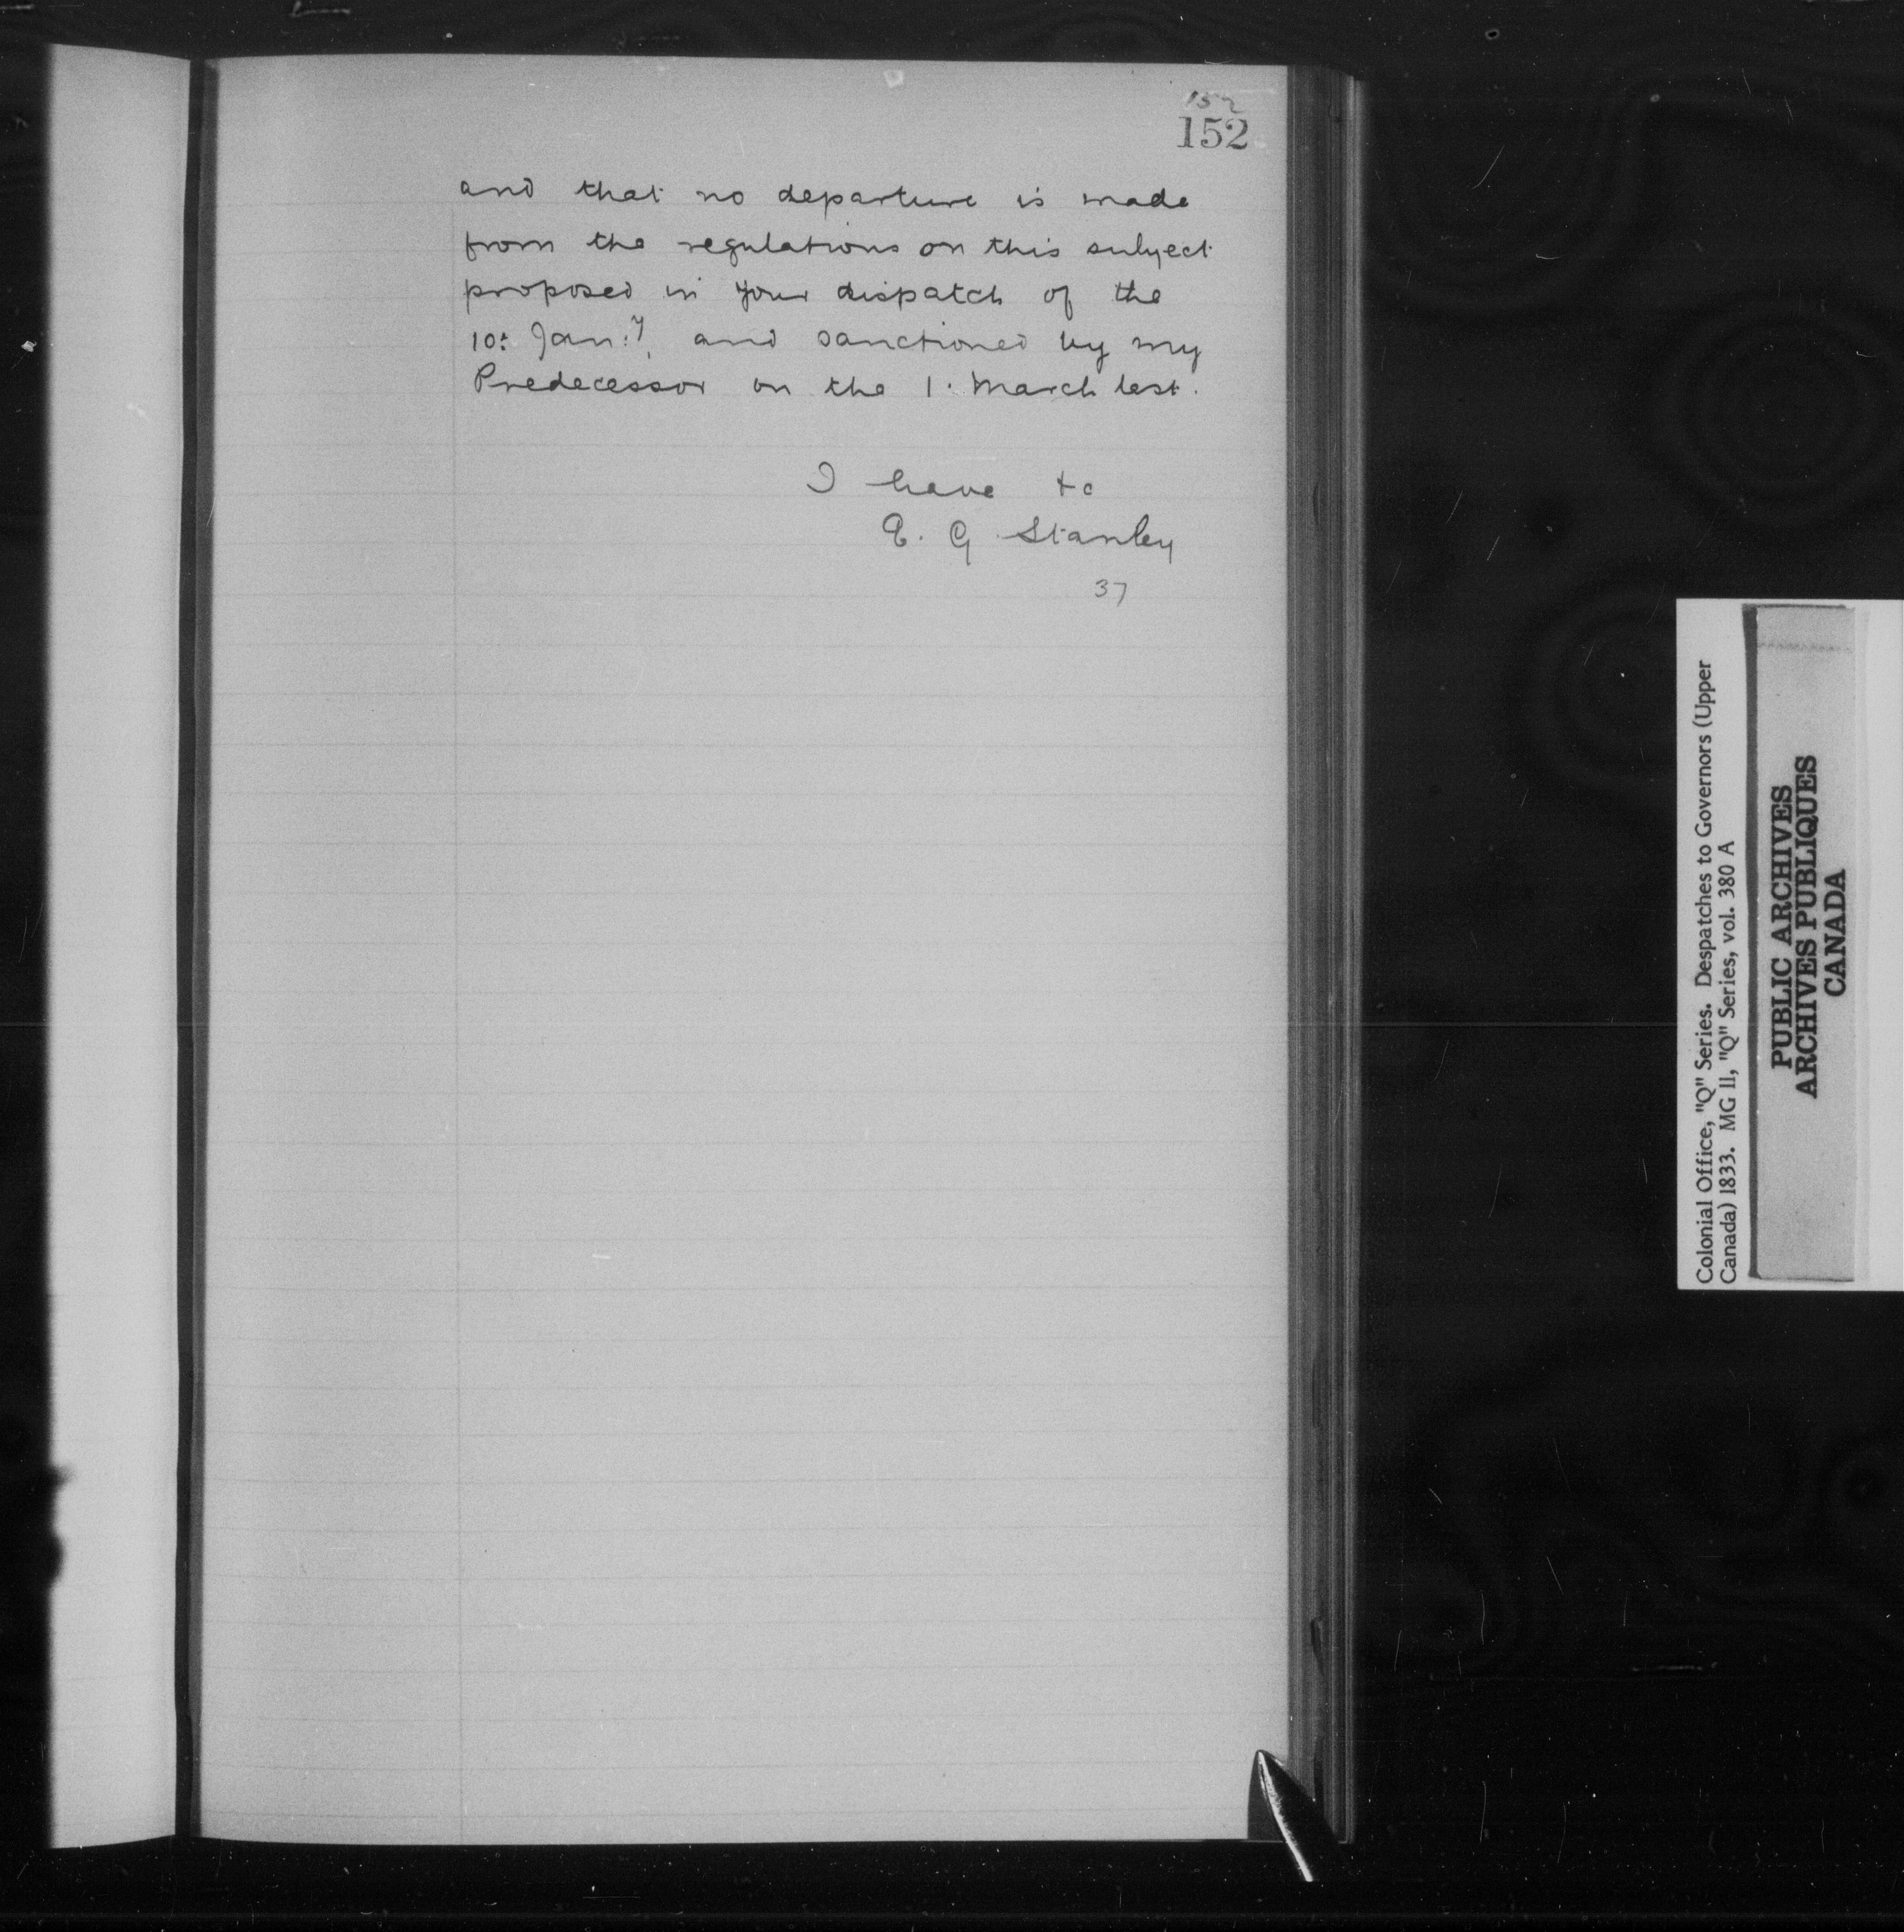 152
152
and that no departure is made
from the regulations on this subject
proposed in your dispatch of the
10t Jan:y, and sanctioned by my
Predecessor on the 1. March last.
I have &c
E. G. Stanley
37
Colonial Office, "Q" Series. Despatches to Governors (Upper
Canada) 1833. MG 11, "Q" Series, vol. 380 A
PUBLIC ARCHIVES
ARCHIVES PUBLIQUES
CANADA